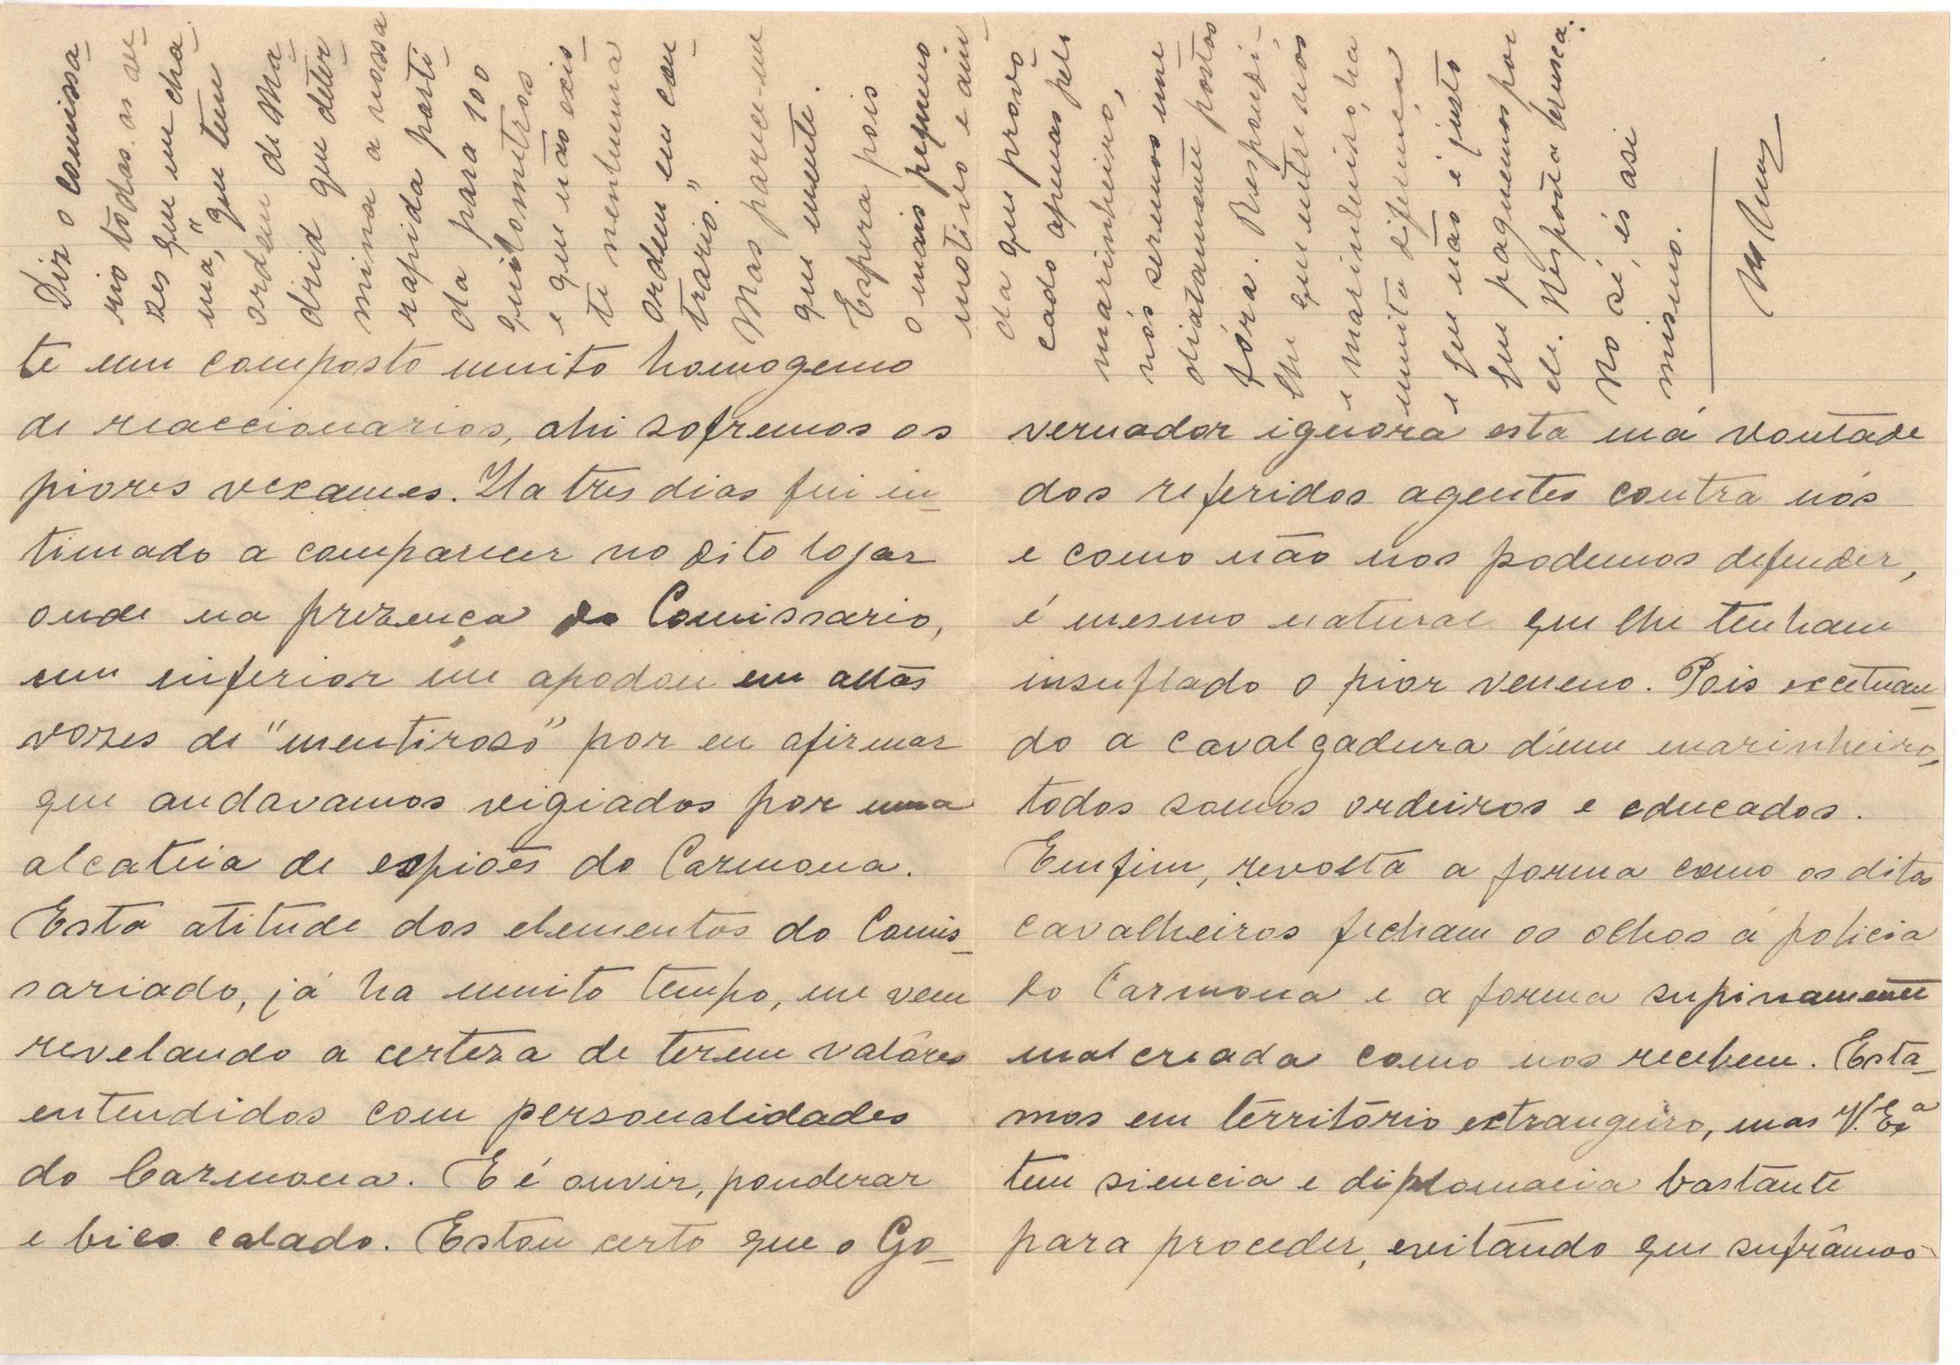 te um composto muito homogeneo
de reaccionarios, ahi sofremos os
piores vexames. Ha tres dias fui in-
timado a comparecer no dito logar
onde na prezença do Comissario,
um inferior me apodou em altas
vozes de "mentiroso" por eu afirmar
que andavamos vigiados por uma
alcateia de espiões do Carmona.
Esta atitude dos elementos do Comis-
sariado, já ha muito tempo, me vem
revelando a certeza de terem valôres
entendidos com personalidades
do Carmona. E é ouvir, ponderar
e bico calado. Estou certo que o Go-
vernador ignora esta má vontade
dos referidos agentes contra nós
e como não nos podemos defender,
é mesmo natural que lhe tenham
insuflado o pior veneno. Pois excetuan-
do a cavalgadura d'um marinheiro,
todos somos ordeiros e educados.
Emfim, revolta a forma como os ditos
cavalheiros fecham os olhos á policia
do Carmona e a forma supinamente
malcreada como nos recebem. Esta-
mos em território extrangeiro, mas V. Exª
tem siencia e diplomacia bastante
para proceder, evitando que sufrâmos
Diz o comissa-
rio todas as ve-
zes que me cha-
ma, "que tem
ordem de Ma-
drid que deter-
mina a nossa
rapida parti-
da para 100
quilometros
e que não exis-
te nenhuma
ordem em con-
trario."
Mas parece-me
que mente.
Espera pois
o mais pequeno
motivo e ain-
da que provo-
cado apenas pelo
marinheiro,
nós seremos ime-
diatamente postos
fóra. Respondi-
lhe que entre nós
e marinheiro, ha
muita diferença
e que não é justo
que paguemos por
ele. Resposta brusca.
No sé, és asi
mismo.